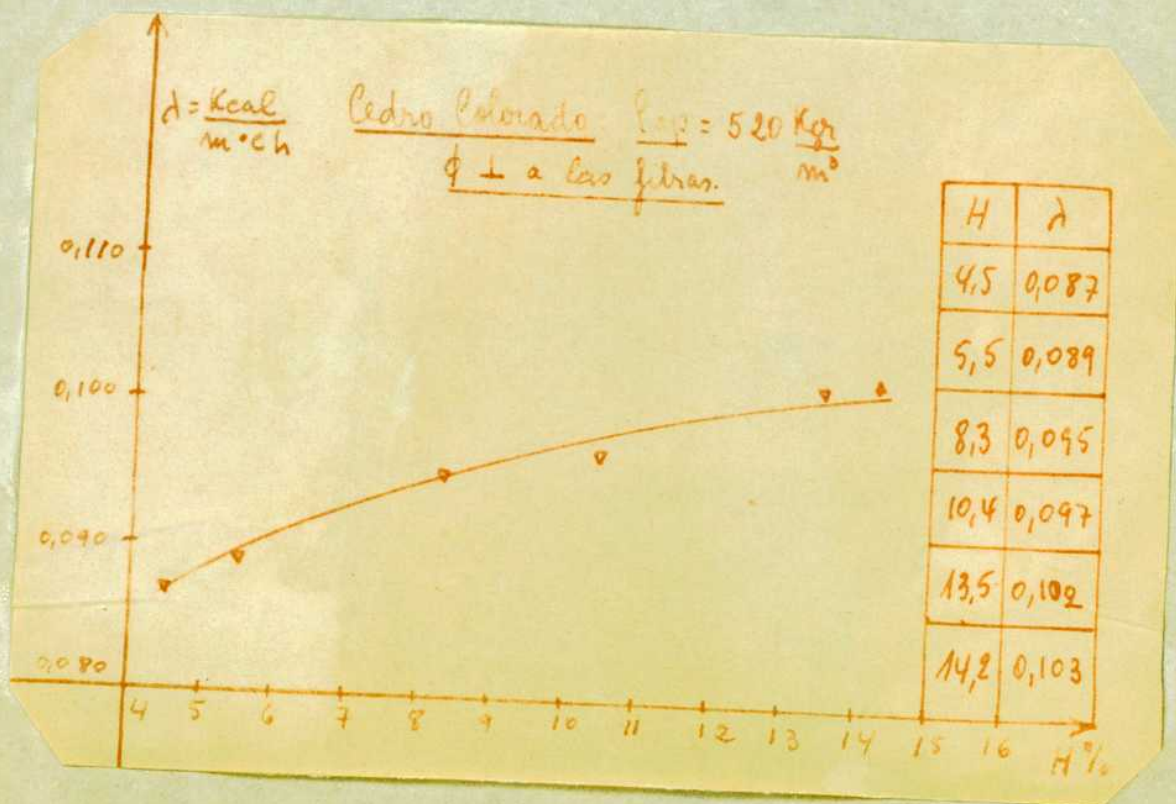 λ = Kcal / m °C h
Cedro Colorado = 520 Kgr / m³
ϕ ⊥ a las fibras.
0,110
0,100
0,090
0,080
4 5 6 7 8 9 10 11 12 13 14 15 16 H %
H λ
4,5 0,087
5,5 0,089
8,3 0,095
10,4 0,097
13,5 0,102
14,2 0,103